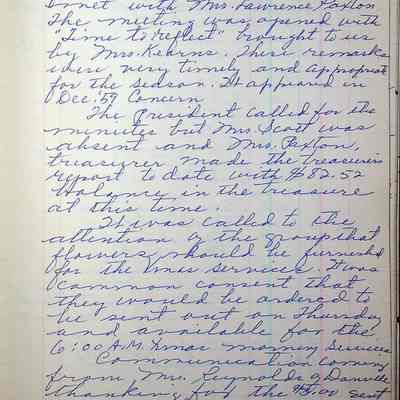 met with Mrs. Lawrence Paxton
The meeting was opened with
"Time to reflect" brought to us
by Mrs. Kearns. These remarks
were very timely and appropriat
for the season. It appeared in
Dec. '59 Concern
The President called for the
minutes but Mrs. Scott was
absent and Mrs. Paxton,
treasurer made the treasurers
report to date with $82.52
balance in the treasure
at this time.
It was called to the
attention of the group that
flowers should be furnished
for the Xmas services. It was
common consent that
they would be ordered to
be sent out on Thursday
and available for the
6:00 A.M. Xmas morning services
Communication coming
from Mrs. Reynolds of Danville
thanking for the $5.00 sent